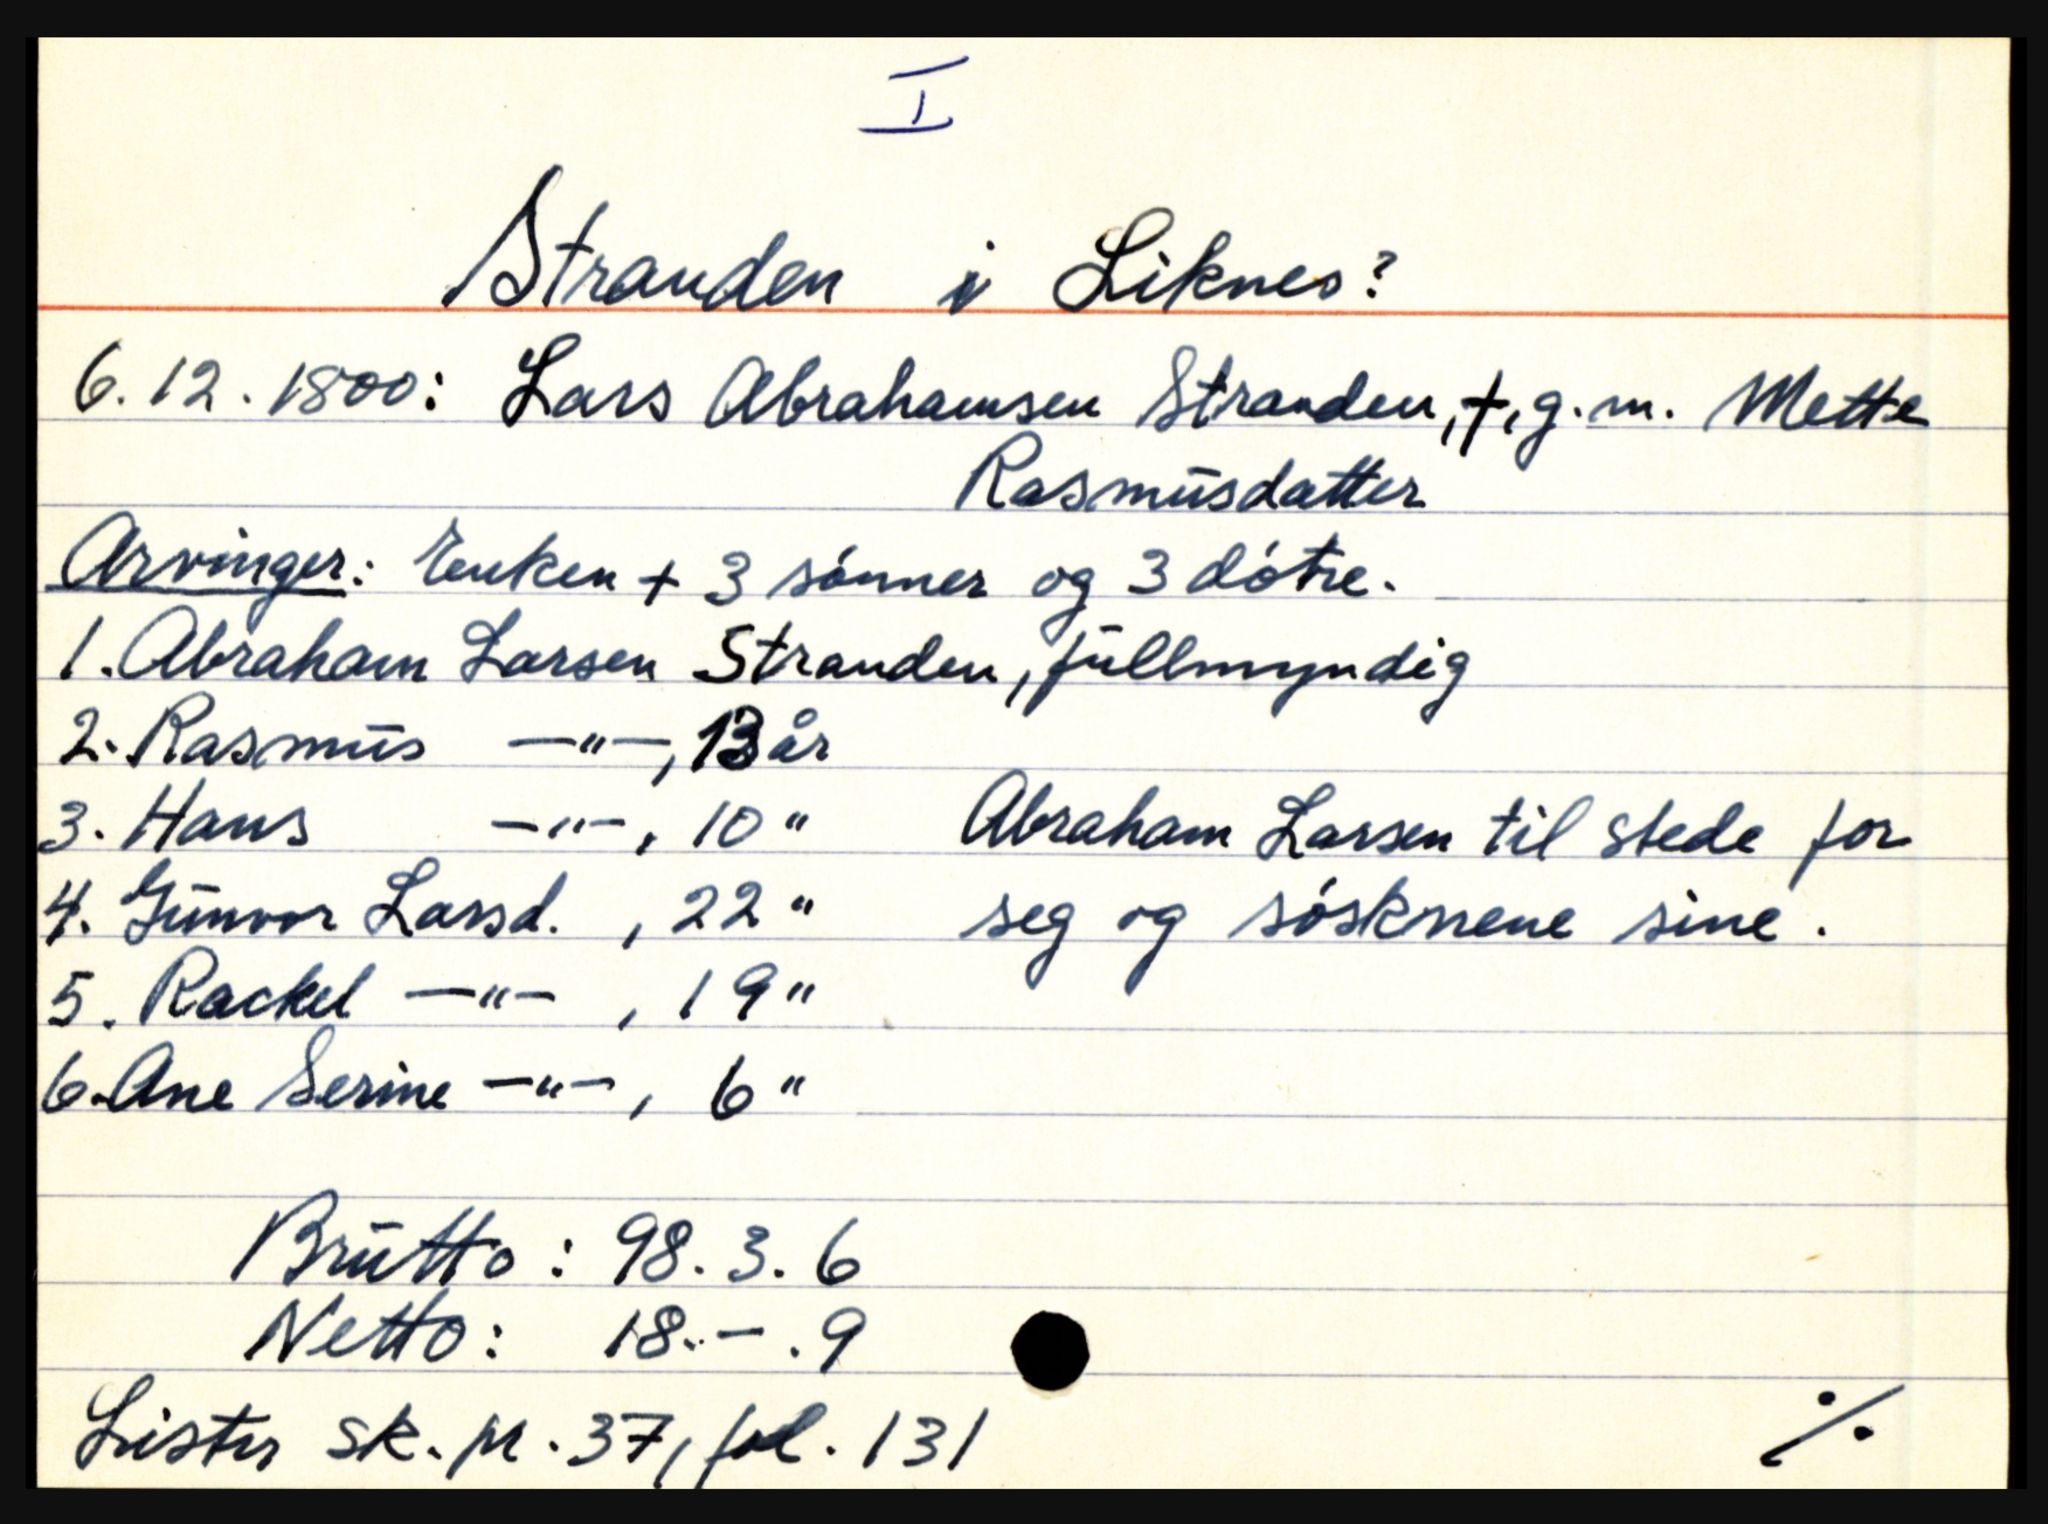 I
Stranden i Liknes?
6.12.1800: Lars Abrahamsen Stranden, †, g.m. Mette
Rasmusdatter
Arvinger: Enken + 3 sónner og 3 dótre.
1. Abraham Larsen Stranden, fullmyndig
2. Rasmus —"—, 13 år
3. Hans —"—, 10 "
4. Gunvor Larsd. , 22 "
5. Rackel —"— , 19 "
6. Ane Serine —"—, 6 "
Abraham Larsen til stede for
seg og sósknene sine.
Brutto: 98.3.6
Netto: 18.-.9
Lister sk.pr.37, fol.131
./.